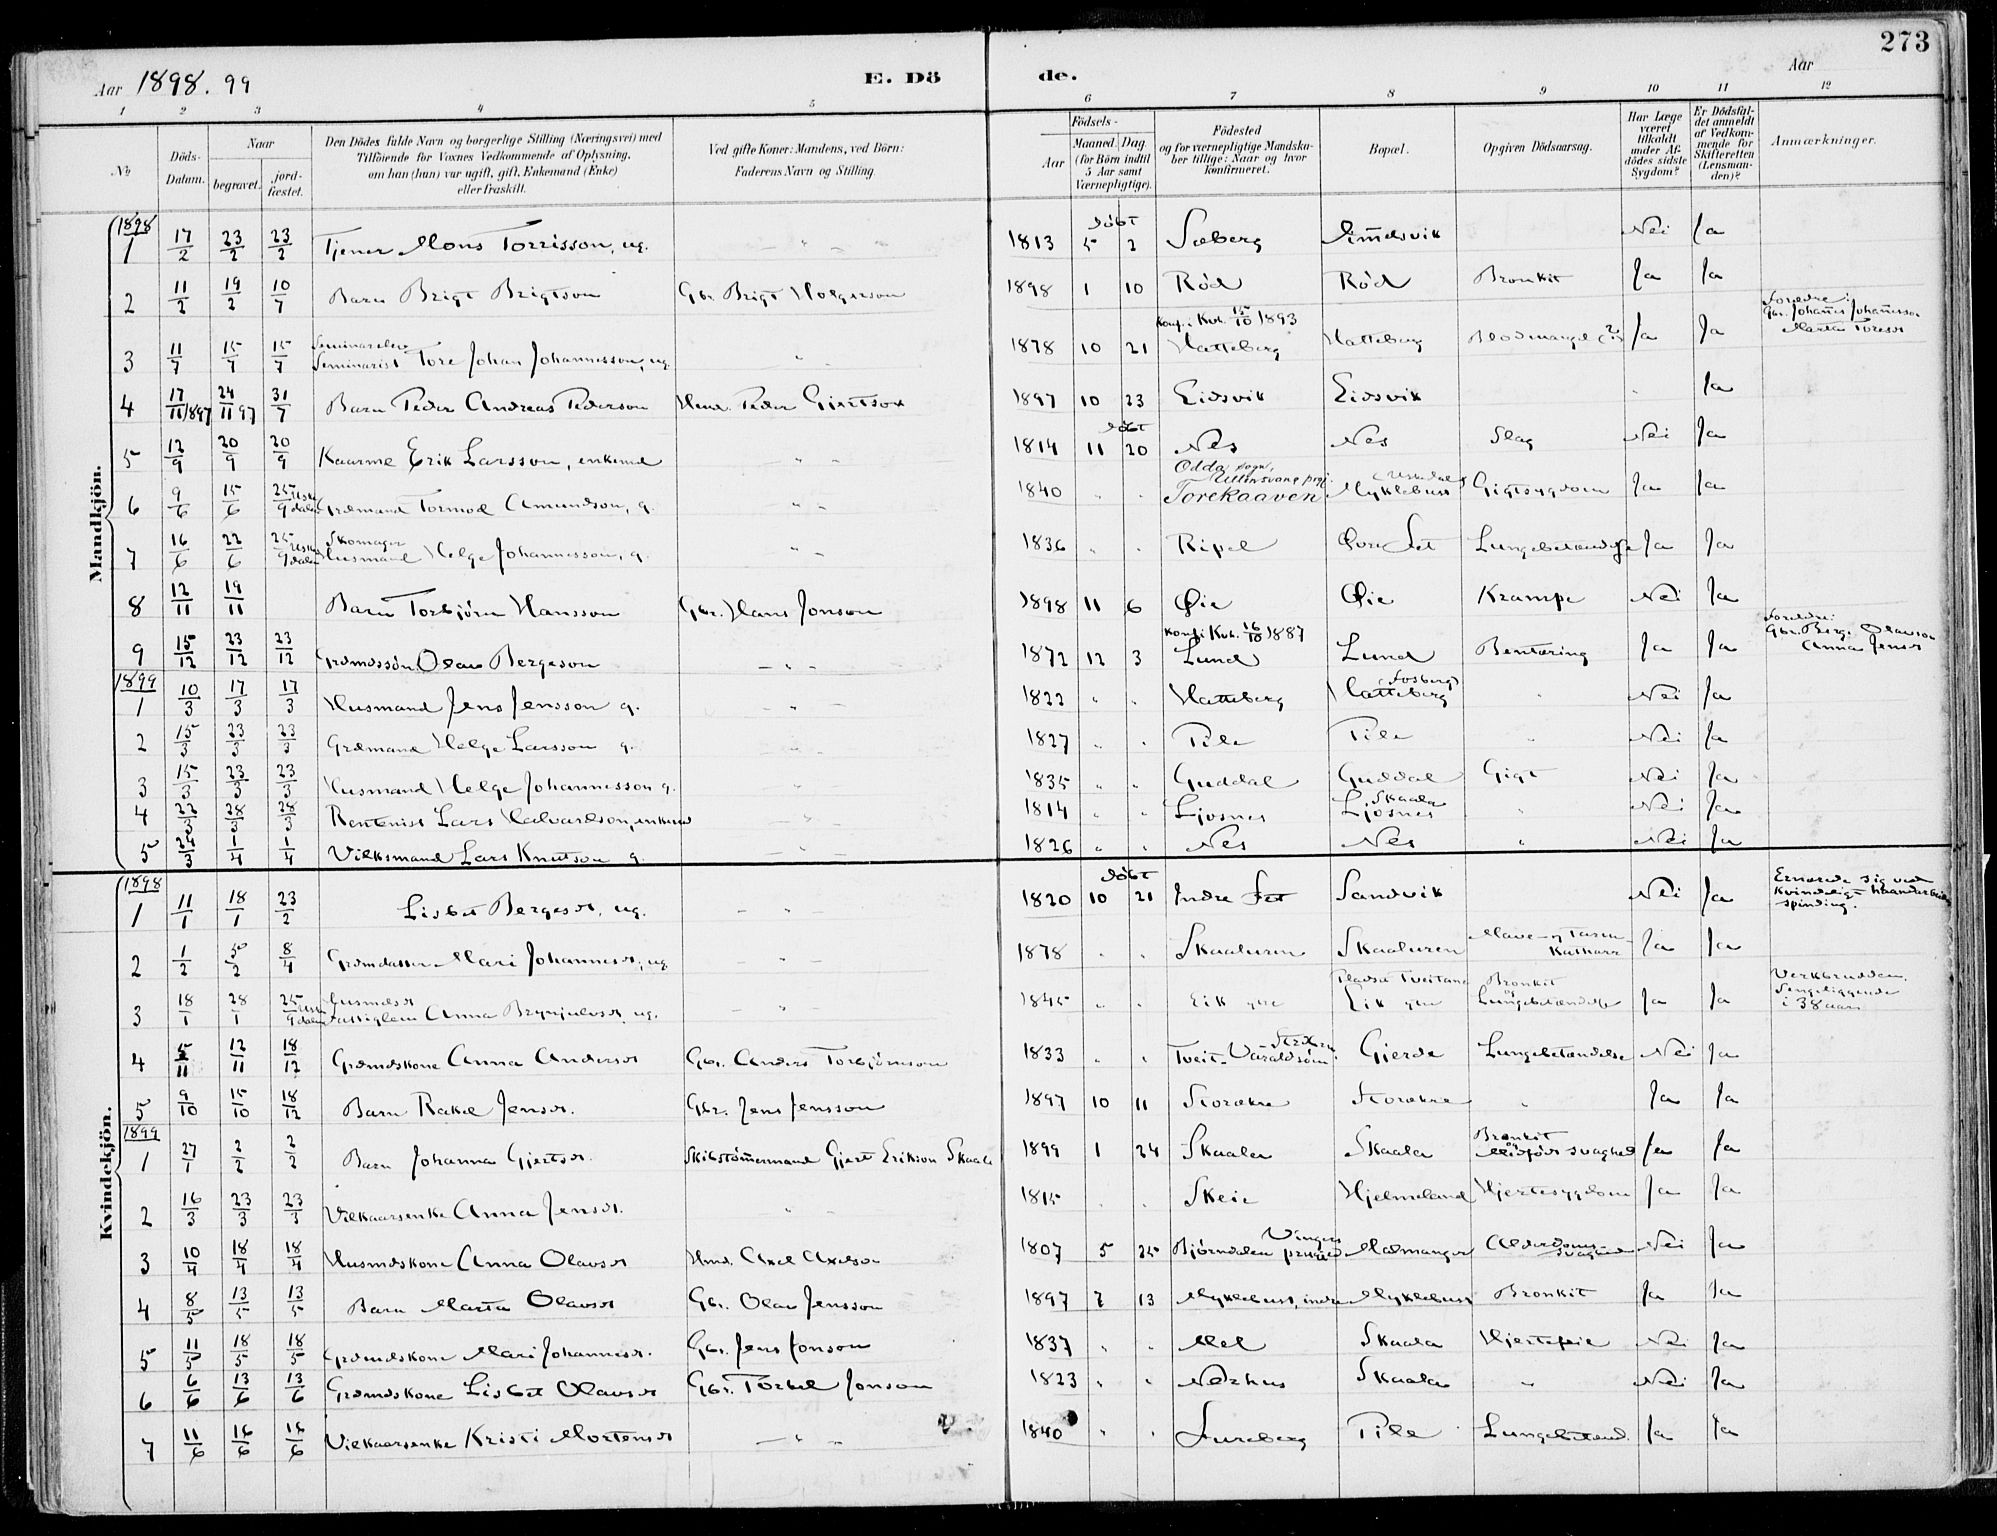 273
Aar 1898. 99 E. Dö de. Aar
1 2 3 4 5 6 7 8 9 10 11 12
No Döds-Datum. Naar begravet. jord-fæstet. Den Dödes fulde Navn og borgerlige Stilling (Næringsvei) med Tilföiende for Voxnes Vedkommende af Oplysning, om han (hun) var ugift, gift, Enkemand (Enke) eller fraskilt. Ved gifte Koner: Mandens, ved Börn: Faderens Navn og Stilling. Födsels- Aar Maaned. Dag. (for Börn indtil 5 Aar samt Værnepligtige). Födested og for værnepligtige Mandskaber tillige: Naar og hvor konfirmeret. Bopæl. Opgiven Dödsaarsag. Har Læge været tilkaldt under Afdödes sidste Sygdom? Er Dödsfaldet anmeldt af Vedkommende for Skifteretten (Lensmanden)? Anmærkninger.
Mandkjön.
1898
döbt
1 17/2 23/2 23/2 Tjener Mons Torrisson, ug. — " — 1813 5 2 Sæberg Ømdsvik Nei Ja
2 11/2 19/2 10/7 Barn Brigt Brigtson Gbr. Brigt Holgerson 1898 1 10 Röd Röd Bronkit Ja Ja
3 11/7 15/7 15/7 Seminarelev Seminarist Tore Johan Johannesson, ug. " Konf. i Kvh. 15/10 1893 1878 10 21 Hatteberg Hatteberg Blodmangel (?) Ja Ja Foreldre: Gbr. Johannes Johannesson Marta Toresdr
4 17/11 1897 24/11 97 31/7 Barn Peder Andreas Pederson Hmd. Peder Gjertson 1897 10 23 Eidsvik Eidsvik Ja
döbt
5 12/9 20/9 20/9 Kaarme Erik Larsson, enkemd — " — 1814 11 20 Nes Nes Slag Nei Ja
6 9/6 15/6 25/9 Uskedalen Grdmand Tormod Amundson, g. " 1840 " " Odda sogn, Ullensvang prgj. Torekaaven Myklebust Uskedal Gigtsygdom Ja Ja
7 16/6 22/6 25/9 Uskedalen Skomager Husmand Helge Johannesson, g. " 1836 " " Ripel Övre Sæt Lungebetændelse Ja Ja
8 12/11 19/11 Barn Torbjörn Hansson Gbr. Hans Jonson 1898 11 6 Øie Øie Krampe Nei Ja
9 15/12 23/12 23/12 Grdmdssön Olav Bergeson — " — Konf. i Kvh. 16/10 1887 1872 12 3 Lund Lund Bentæring Ja Ja Foreldre: Gbr. Berge Olavson Anna Jensdr
1899
1 10/3 17/3 17/3 Husmand Jens Jensson g. " 1822 " " Hatteberg Hatteberg (Fosberg) " Nei Ja
2 15/3 23/3 23/3 Grdmand Helge Larsson g. " 1827 " " Pile Pile " Nei Ja
3 15/3 23/3 23/3 Husmand Helge Johannesson g. " 1835 " " Guddal Guddal Gigt Nei Ja
4 22/3 28/3 28/3 Rentenist Lars Halvardson, enkemd " 1814 " " Ljosnes Skaala Ljosnes " Nei Ja
5 25/3 1/4 1/4 Vilksmand Lars Knutson g. — " — 1826 " " Nes Nes " Nei Ja
Kvindekjön.
1898
döbt
1 11/1 18/1 23/2 Lisbet Bergesdr, ug. — " — 1820 10 21 Indre Sæt Sandvik Nei Ja Ernærede sig ved kvindeligt haandarbeide spinding.
2 1/2 5/2 8/4 Grdmdatter Mari Johannesdr, ug. — " — 1878 " " Skaaluren Skaaluren Mave- og Tarm-Katharr Ja Ja
3 18/1 28/1 25/9 Uskedalen Husmdsdr Fattiglem Anna Brynjulvsdr ug. — " 1845 " " Eik ytre Pladset Tveitane Eik ytre Bronkit og Lungebetændelse Ja Ja Verkbrudden. Sengeliggende i 38 aar.
4 5/11 12/11 18/12 Grdmdskone Anna Andersdr Gbr. Anders Torbjörnson 1833 " " Tveit-Varaldsöen Gjerde Lungebetændelse Nei Ja
5 9/10 15/10 18/12 Barn Rakel Jensdr. Gbr. Jens Jensson 1897 10 11 Storækre Storækre " Ja Ja
1899
1 27/1 2/2 2/2 Barn Johanna Gjertsdr. Skibstömmermand Gjert Erikson Skaala 1899 1 24 Skaala Skaala Bronkit og Medfödt svaghed Ja Ja
2 16/3 23/3 23/3 Vilkaarsenke Anna Jensdr. " 1815 Skeie Hjelmeland Hjertesygdom Ja Ja
3 10/4 18/4 18/4 Husmdskone Anna Olavsdr Hmd. Axel Axelson 1807 5 25 Björndalen Vingers prgjæld Malmanger Alderdomssvaghed Nei Ja
4 8/5 13/5 13/5 Barn Marta Olavsdr Gbr. Olav Jensson 1897 7 13 Myklebust, indre Myklebust Bronkit Ja Ja
5 11/5 18/5 18/5 Grdmdskone Mari Johannesdr. Gbr. Jens Jonson 1837 " " Mel Skaala Hjertefeil Nei Ja
6 6/6 13/6 13/6 Grdmdskone Lisbet Olavsdr Gbr. Torkel Jonson 1823 " " Nedrhus Skaala " Nei Ja
7 11/6 16/6 16/6 Vilkaarsenke Kristi Mortensdr — " — 1840 " " Fureberg Pile Lungebetænd. Ja Ja